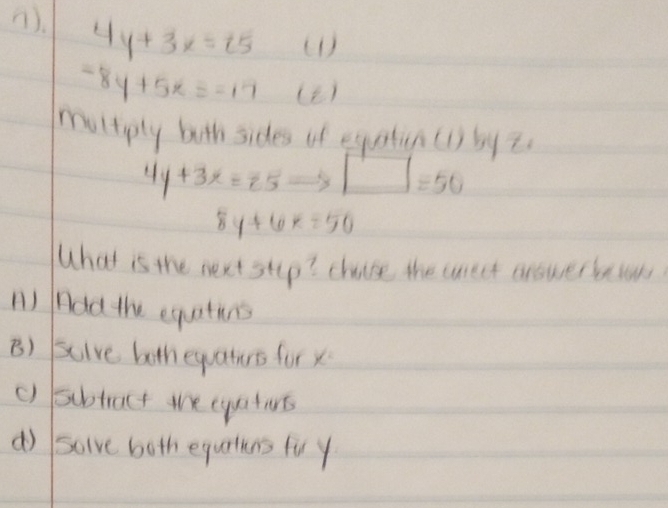 1).
4y + 3x = 25 (1)
-8y + 5x = -17 (2)
multiply both sides of equation (1) by 2.
4y + 3x = 25 → = 50
8y + 6x = 50
What is the next step? choose the correct answer below.
A) Add the equations
B) Solve both equations for x.
c) subtract the equations
d) Solve both equations for y.